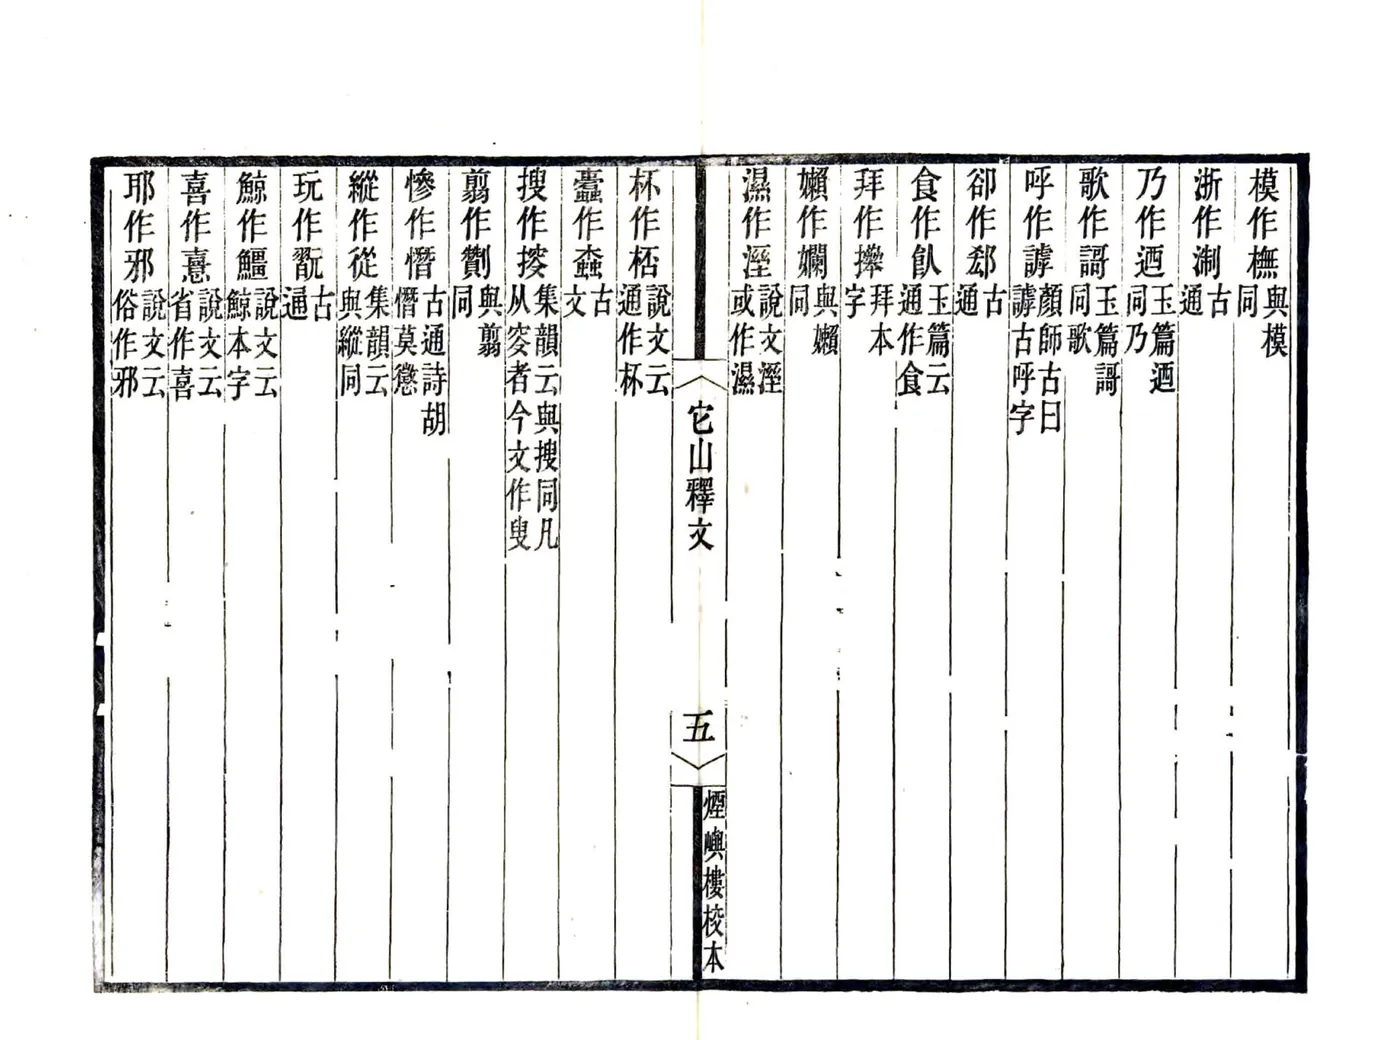 模作橅與模同
浙作淛古通
乃作迺玉篇迺同乃
歌作謌玉篇謌同歌
呼作謼顏師古曰謼古呼字
卻作郄古通
食作飤玉篇云通作食
拜作㩪拜本字
嬾作孏與嬾同
濕作溼說文溼或作濕
它山釋文
五
煙嶼樓校本
杯作桮說文云通作杯
蠹作螙古文
搜作㛐集韻云與搜同凡从㚇者今文作叟
翦作劗與翦同
慘作憯古通詩胡憯莫懲
縱作從集韻云與縱同
玩作翫古通
鯨作䲔說文云鯨本字
喜作憙說文云省作喜
耶作邪說文云俗作邪